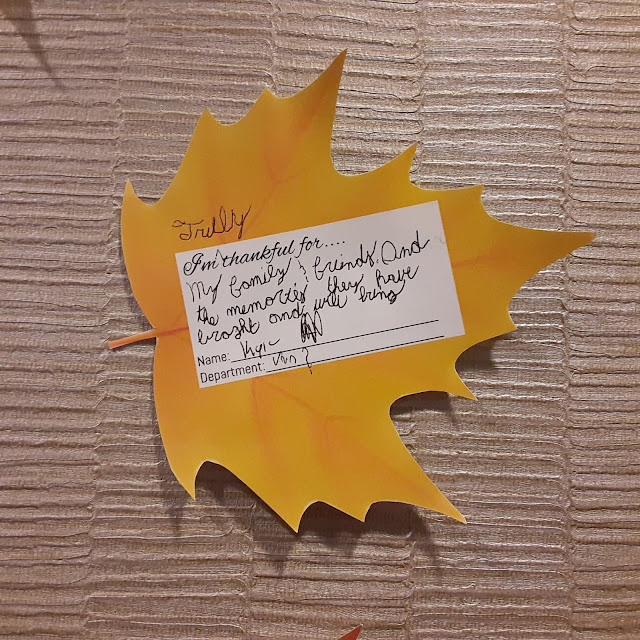 Trully
I'm thankful for....
My family & friends. And
the memories they have
broght and will bring
Name:
Department: